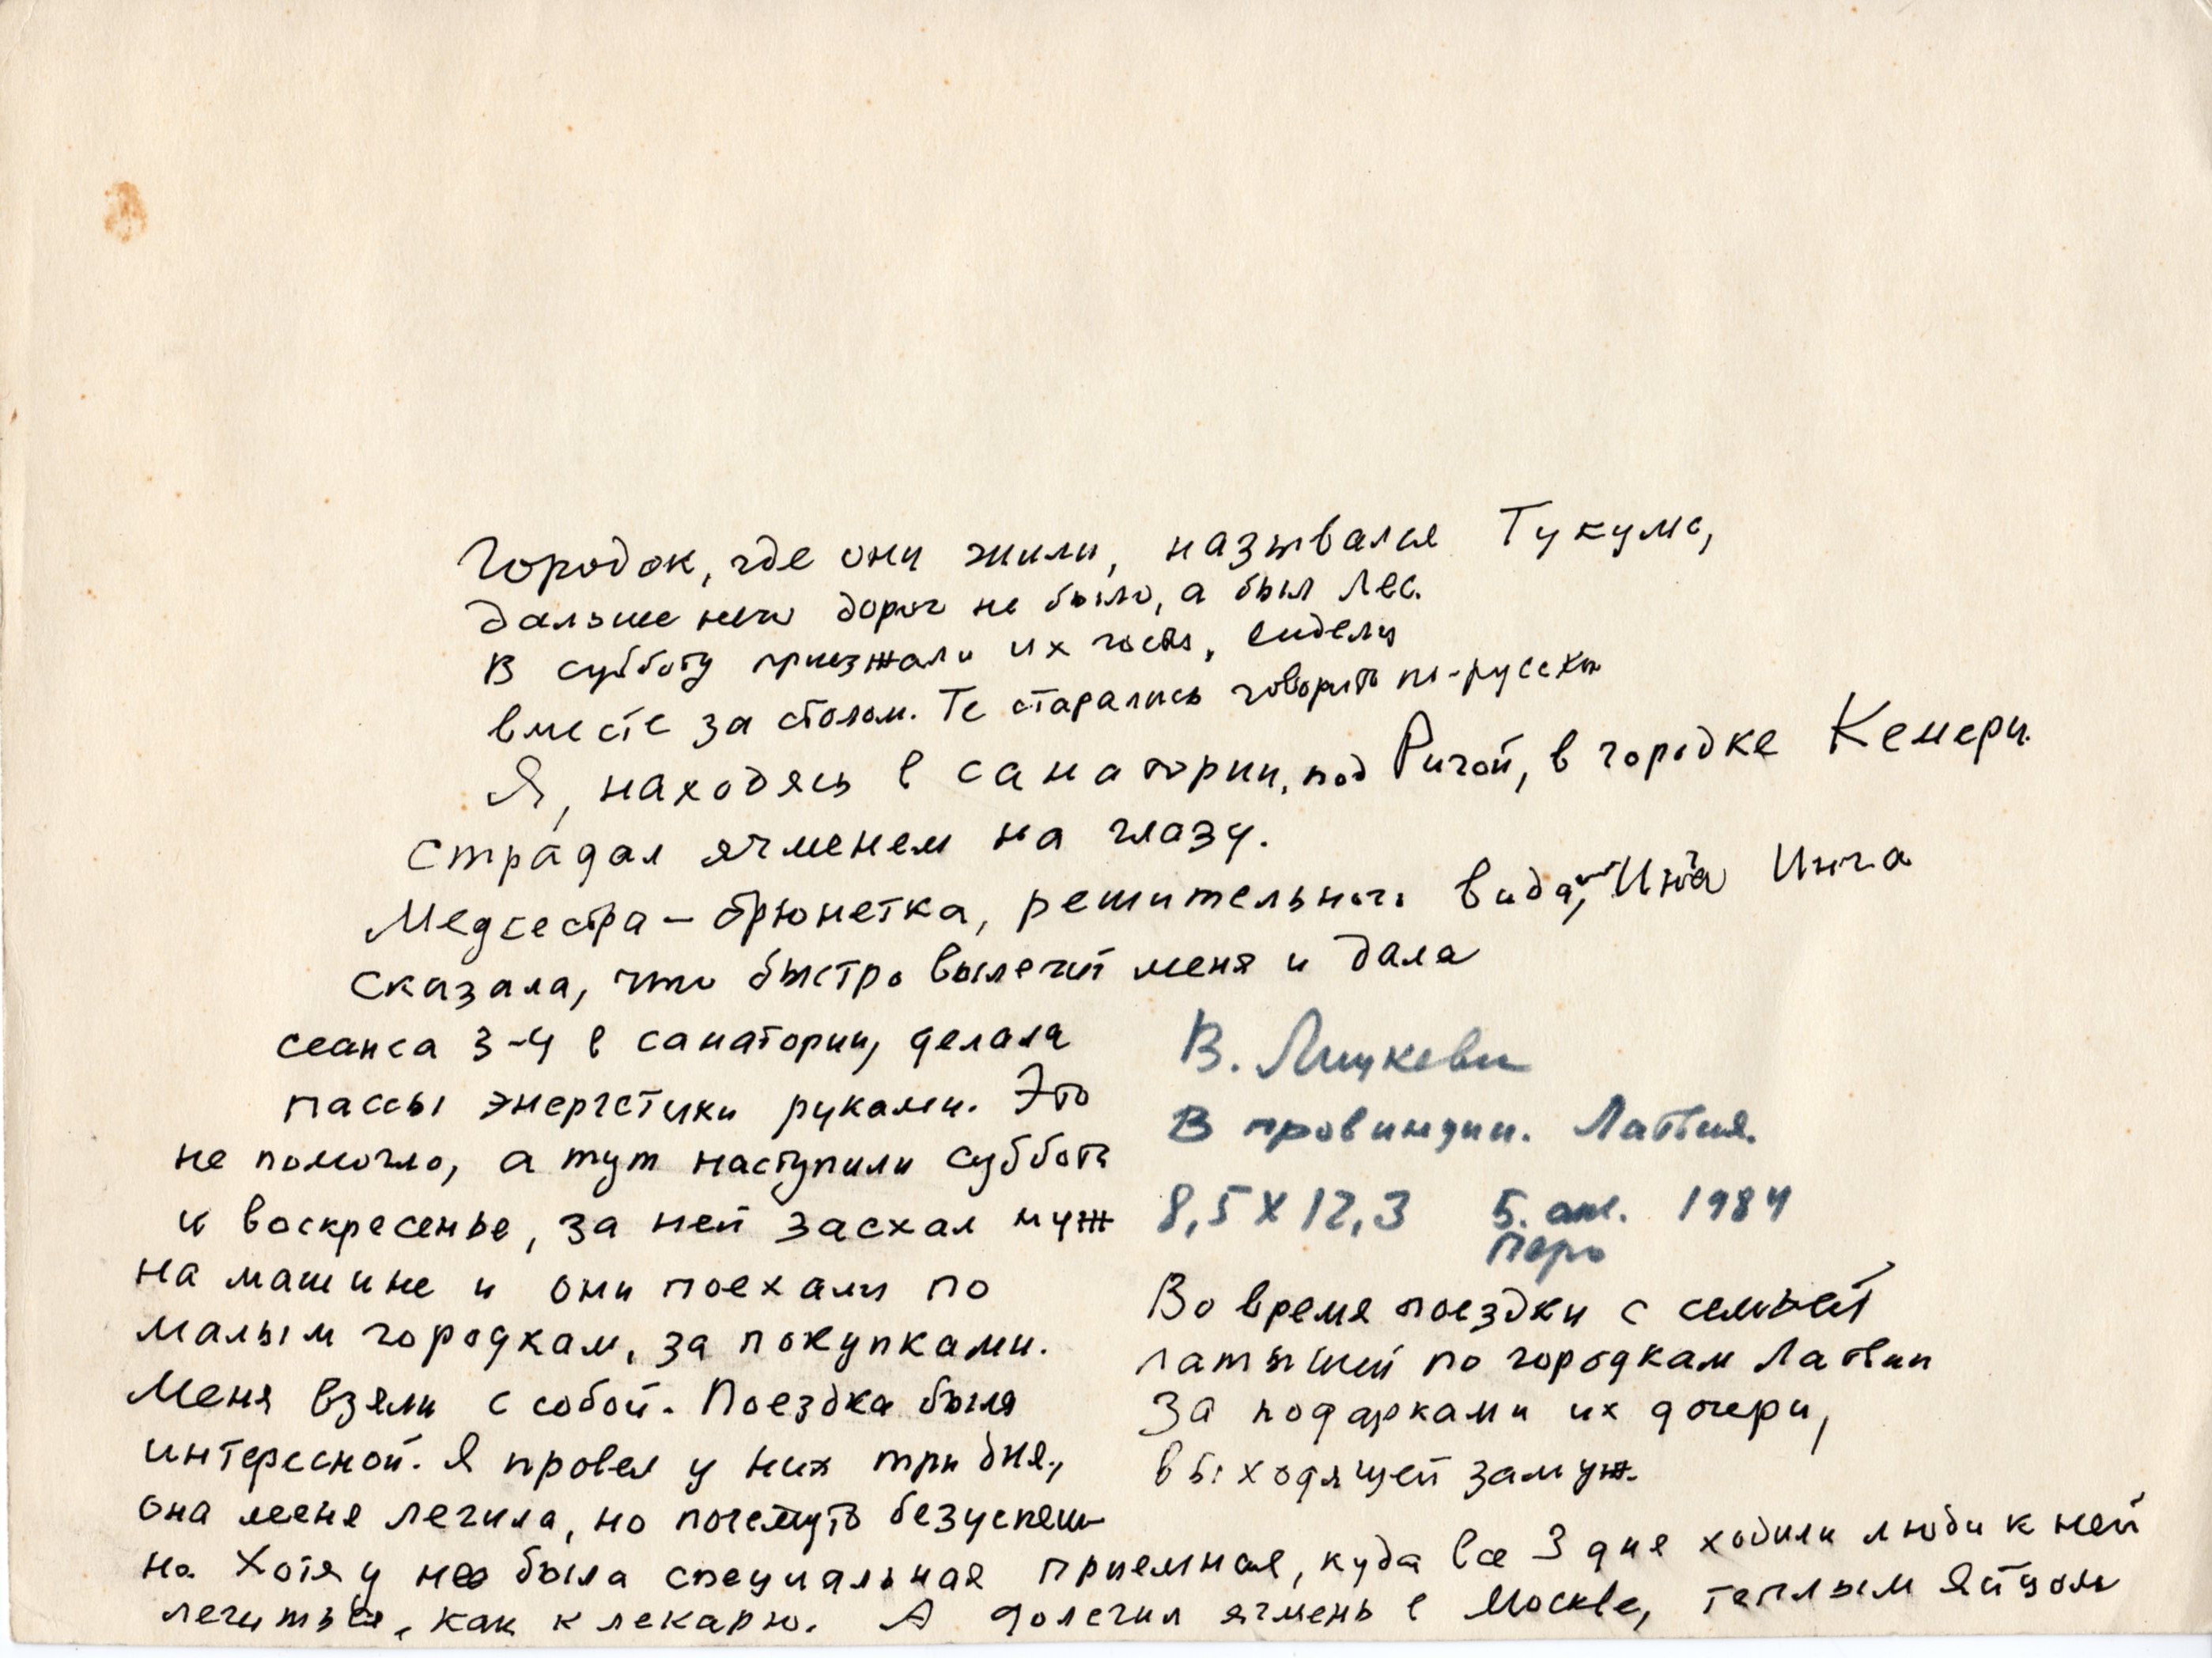 Городок, где они жили, назывался Тукумс,
дальше него дорог не было, а был лес.
В субботу приезжали их гости, сидели
вместе за столом. Те старались говорить по-русски
Я, находясь в санатории, под Ригой, в городке Кемери.
страдал ячменем на глазу.
Медсестра – брюнетка, решительного вида, Инга
сказала, что быстро вылечит меня и дала
сеанса 3-4 в санатории, делала
пассы энергетики руками. Это
не помогло, а тут наступили суббота
и воскресенье, за ней заехал муж
на машине и они поехали по
малым городкам, за покупками.
Меня взяли с собой. Поездка была
интересной. Я провел у них три дня,
она меня лечила, но почемуто безуспеш-
но Хотя у нее была специальная приемная, куда все 3 дня ходили люди к ней
лечиться, как к лекарю. А долечил ячмень в Москве, теплым яйцом
В.
В провинции. Латвия.
8,5 X 12,3 Б. ак. 1984
перо
Во время поездки с семьей
латышей по городкам Латвии
За подарками их дочери,
выходящей замуж.